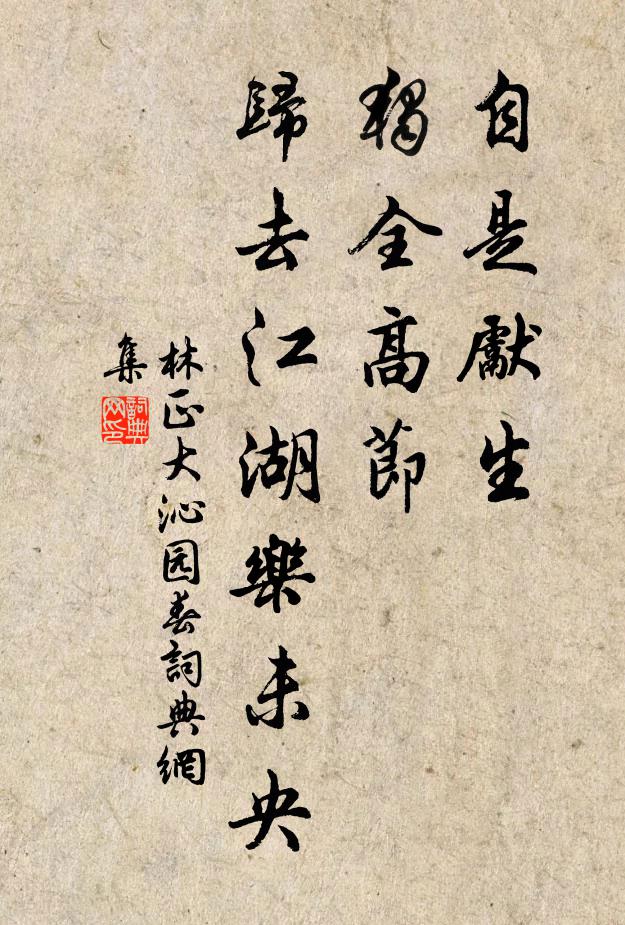 自是獻生
獨全高節
歸去江湖樂未央
林正大沁园春詞典網
集
詞典网印